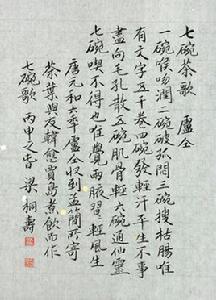 七碗茶歌 盧仝
一碗喉吻潤二碗破孤悶三碗搜枯腸唯
有文字五千卷四碗發輕汗平生不事
盡向毛孔散五碗肌骨輕六碗通仙靈
七碗喫不得也唯覺兩腋習習輕風生
唐元和六年盧仝收到孟簡所寄
茶葉與友韓愈賈島煮飲而作
七碗歌 丙申之春 梁桐壽